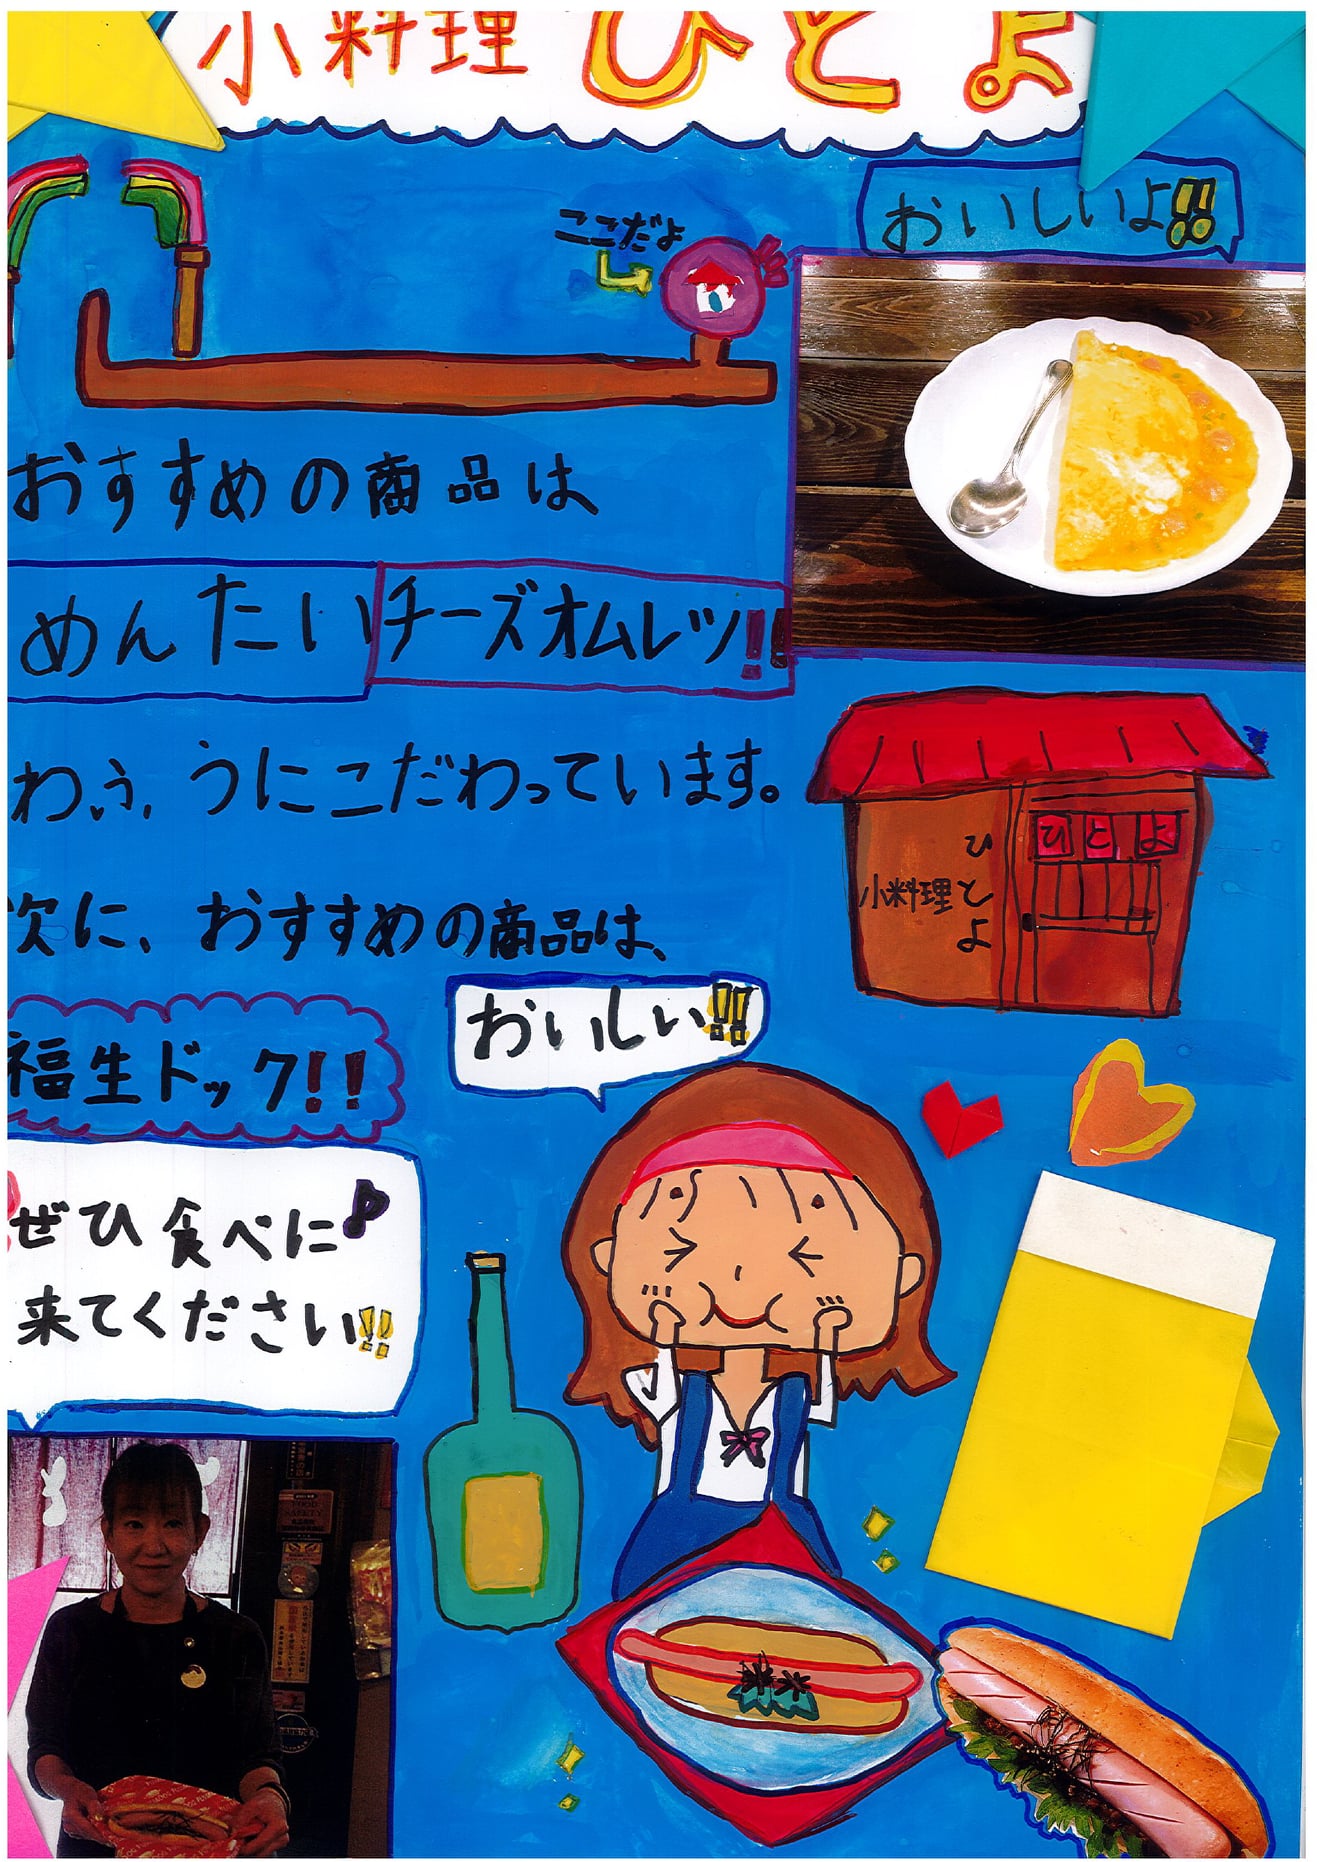 小料理 ひとよ
おいしいよ!!
ここだよ
おすすめの商品は
めんたいチーズオムレツ!!
わふうにこだわっています。
次に、おすすめの商品は、
福生ドック!!
おいしい!!
ひとよ
小料理
ひとよ
ぜひ食べに♪
来てください!!